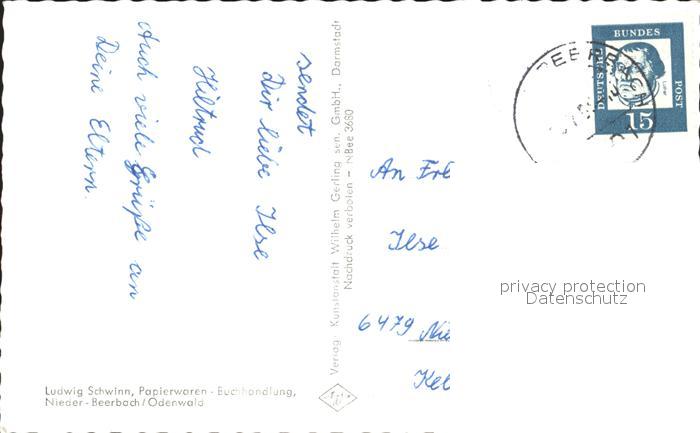 sendet
Dir liebe Ilse
Hiltrud
Auch viele Grüße an
Deine Eltern.
Verlag Kunstanstalt Wilhelm Gerling sen. GmbH., Darmstadt
Nachdruck verboten - NBee 3680
Ludwig Schwinn, Papierwaren - Buchhandlung,
Nieder-Beerbach/Odenwald
BUNDES
POST
DEUTSCHE
Luther
15
An
Ilse
6479
privacy protection
Datenschutz